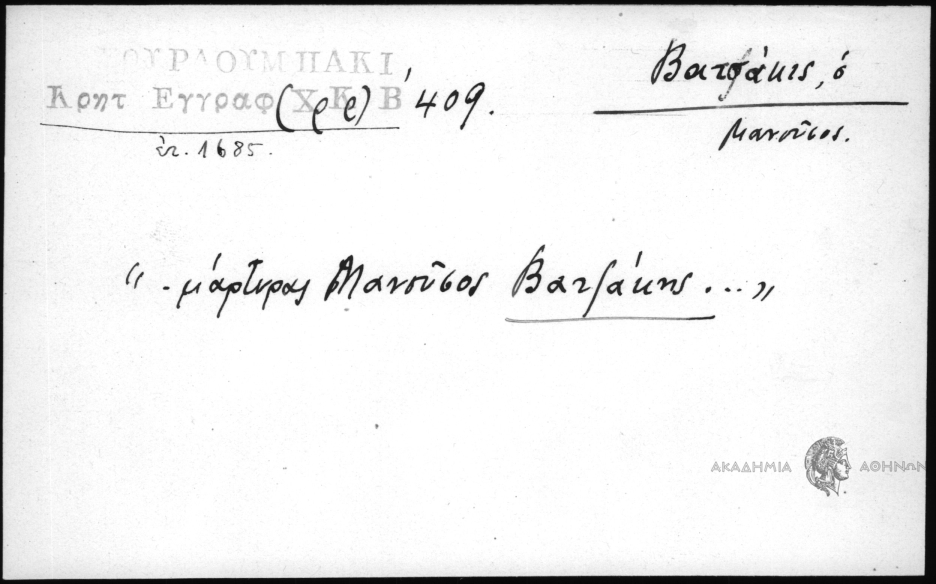 ΟΥΡΛΟΥΜΠΑΚΙ
Κρητ Εγγραφ Χ.Κ. Β (ρρ)' 409.
ἐτ. 1685.
Βατζάκις, ὁ
Μανοῦσος.
“ . μάρτυρας Μανοῦσος Βατζάκης ... „
ΑΚΑΔΗΜΙΑ ΑΘΗΝΩΝ